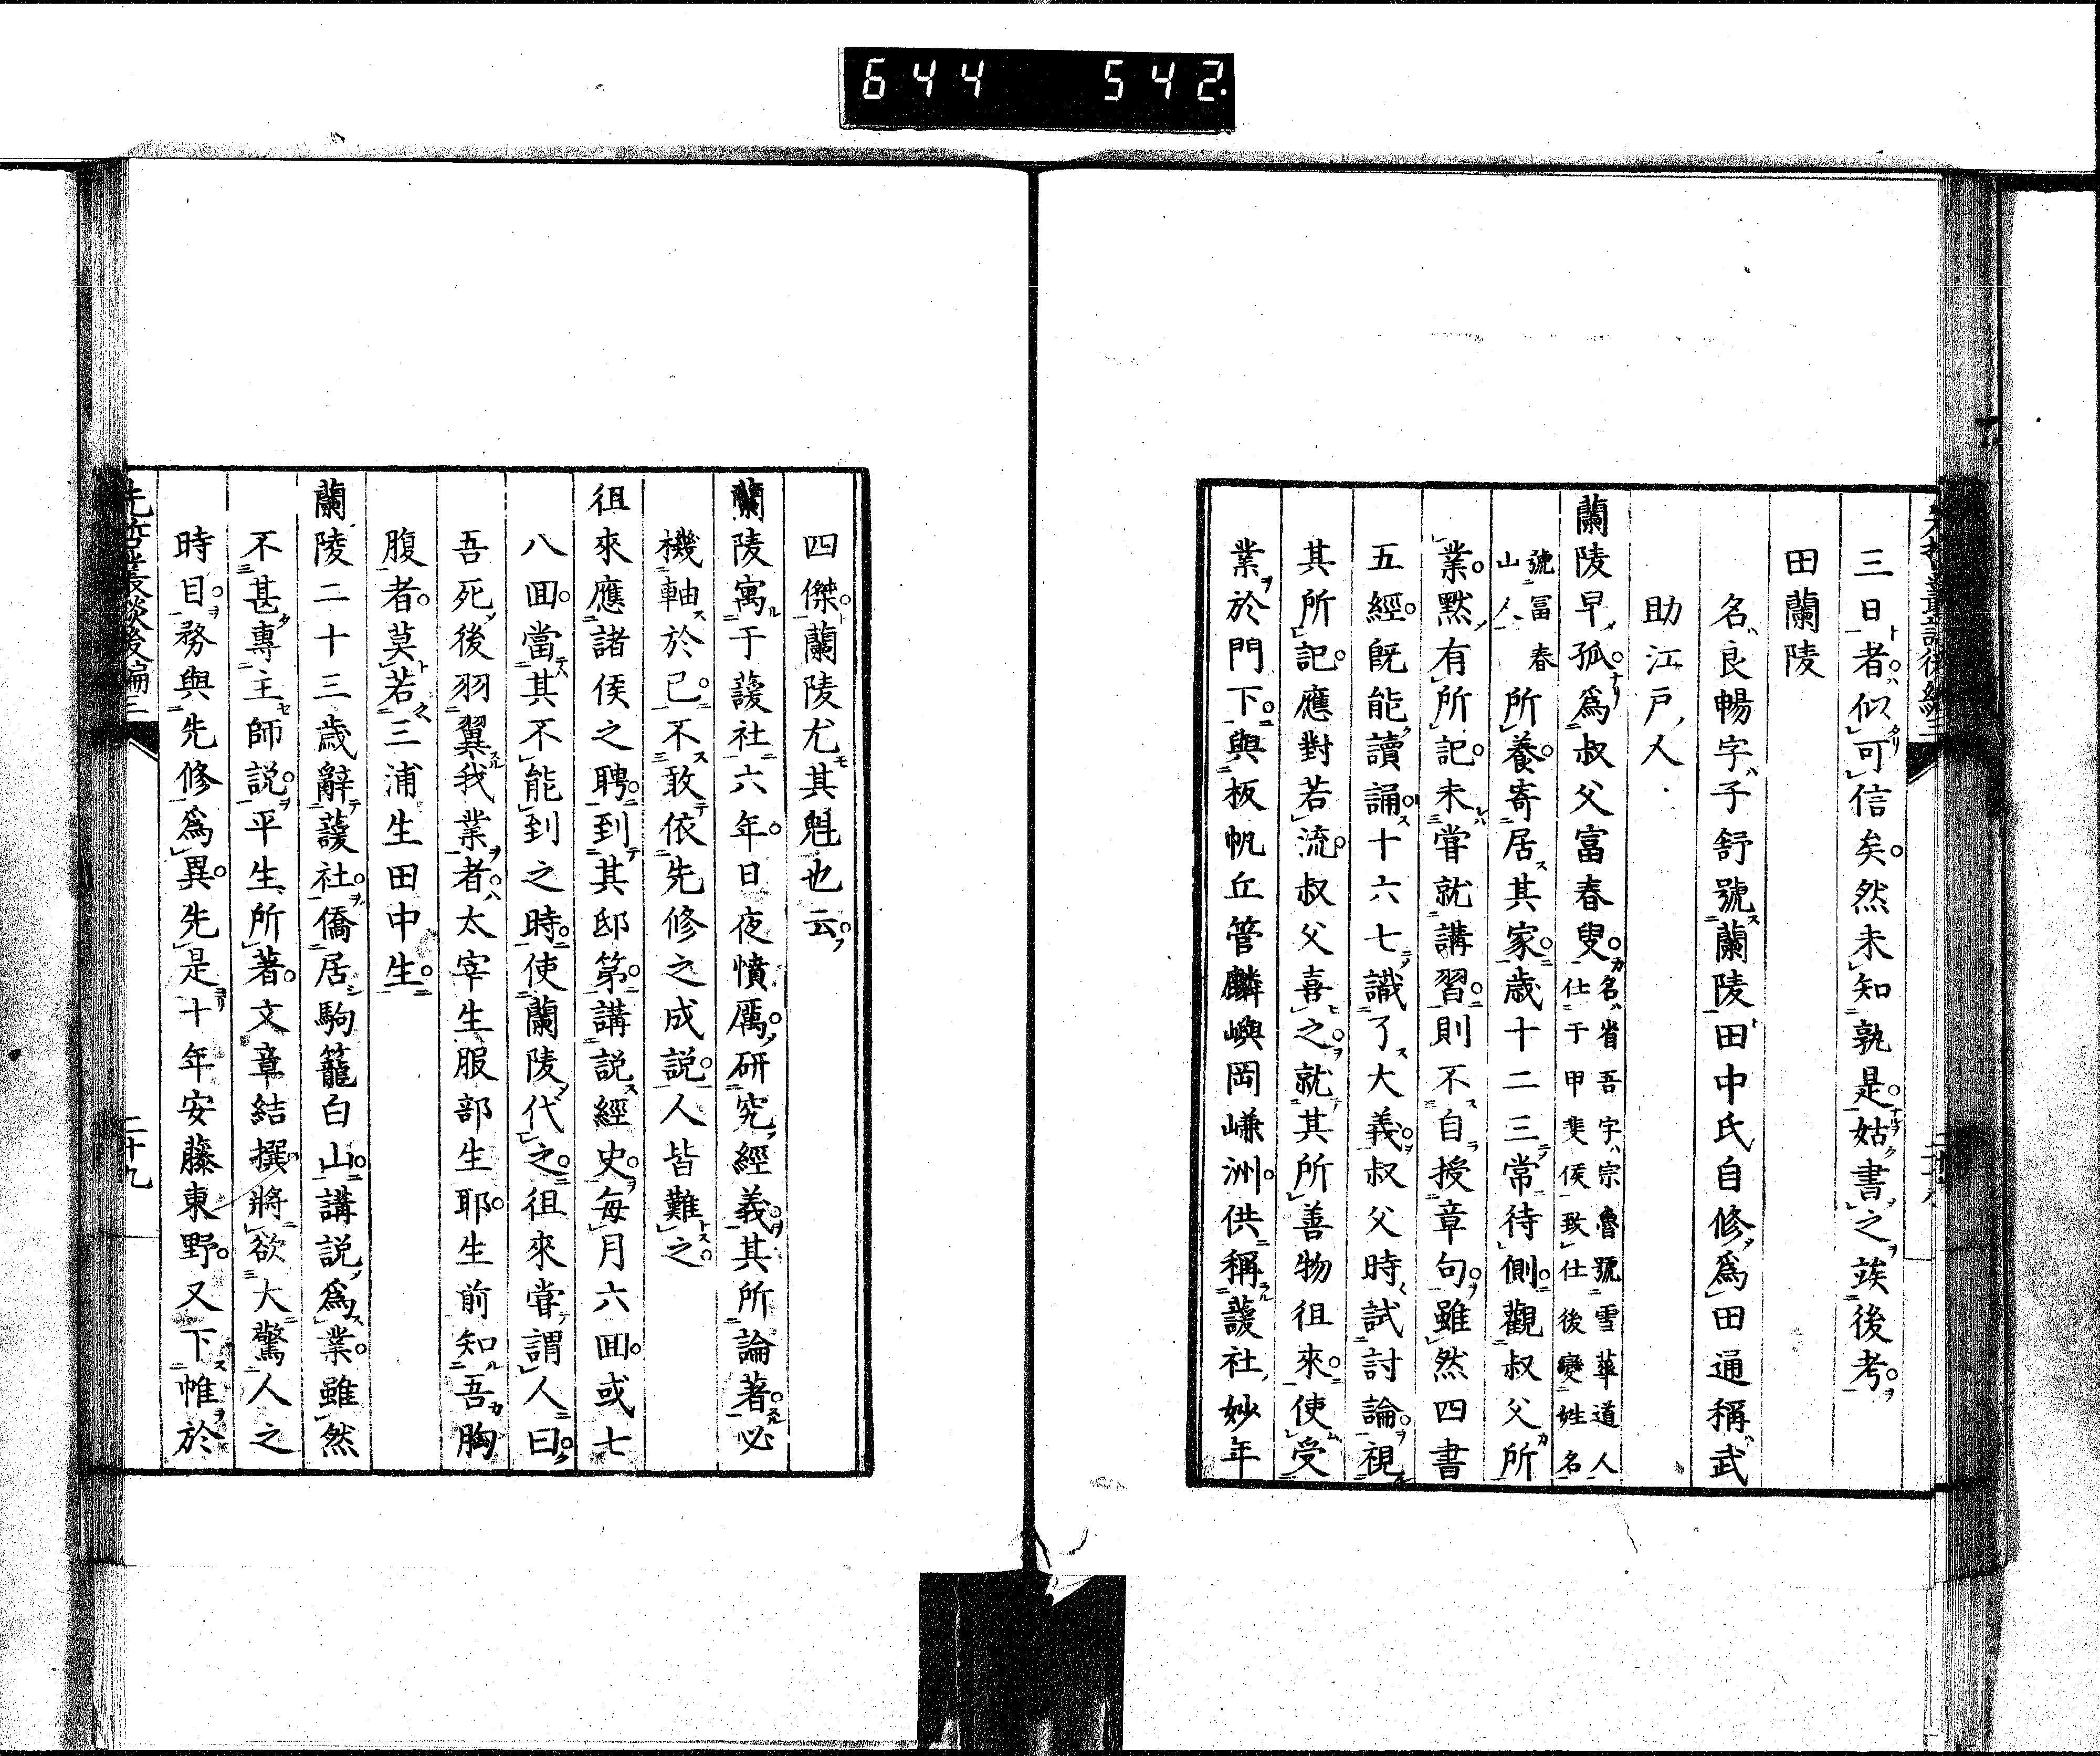 644 542
三日者似可信矣然未知孰是姑書之竢後考
田蘭陵
名良暢字子舒號蘭陵田中氏自修爲田通稱武
助江戸人
蘭陵早孤爲叔父富春叟名省吾字宗魯號雪華道人仕于甲斐侯致仕後變姓名
號富春山人所養寄居其家歳十二三常待側觀叔父所
業默有所記未嘗就講習則不自授章句雖然四書
五經既能讀誦十六七識了大義叔父時試討論視
其所記應對若流叔父喜之就其所善物徂來使受
業於門下與板帆丘管麟嶼岡嵰洲供稱蘐社妙年
四傑蘭陵尤其魁也云
蘭陵寓于蘐社六年日夜憤厲研究經義其所論著必
機軸於己不敢依先修之成説人皆難之
徂來應諸侯之聘到其邸第講説經史每月六回或七
八回當其不能到之時使蘭陵代之徂來嘗謂人曰
吾死後羽翼我業者太宰生服部生耶生前知吾胸
腹者莫若三浦生田中生
蘭陵二十三歳辭蘐社僑居駒籠白山講説爲業雖然
不甚專主師説平生所著文章結撰將欲大驚人之
時目務與先修爲異先是十年安藤東野又下帷於
先哲叢談後編三
二十九